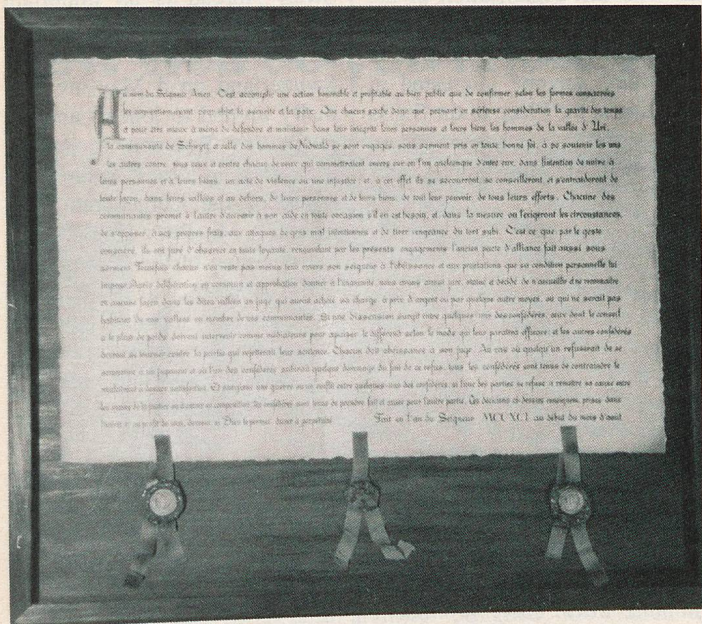 Au nom du Seigneur Amen. C'est accomplir une action honorable et profitable au bien public que de confirmer selon les formes consacrées
les conventions ayant pour objet la sécurité et la paix. Que chacun sache donc que, prenant en sérieuse considération la gravité des temps
et pour être mieux à même de défendre et maintenir dans leur intégrité leurs personnes et leurs biens, les hommes de la vallée d'Uri,
la communauté de Schwytz et celle des hommes de Nidwald se sont engagés, sous serment pris en toute bonne foi, à se soutenir les uns
les autres contre tous ceux et contre chacun de ceux qui commettraient envers eux ou l'un quelconque d'entre eux, dans l'intention de nuire à
leurs personnes et à leurs biens, un acte de violence ou une injustice; et à cet effet ils se secourront, se conseilleront et s'entraideront de
toute façon, dans leurs vallées et au dehors, de leurs personnes et de leurs biens, de tout leur pouvoir, de tous leurs efforts. Chacune des
communautés promet à l'autre d'accourir à son aide en toute occasion s'il en est besoin, et dans la mesure où l'exigeront les circonstances,
de s'opposer, à ses propres frais, aux attaques de gens mal intentionnés et de tirer vengeance du tort subi. C'est ce que, par le geste
consacré, ils ont juré d'observer en toute loyauté, renouvelant par les présents engagements l'ancien pacte d'alliance fait aussi sous
serment. Toutefois chacun n'en reste pas moins tenu envers son seigneur à l'obéissance et aux prestations que sa condition personnelle lui
impose. Après délibération en commun et approbation donnée à l'unanimité, nous avons aussi juré, statué et décidé de n'accueillir et ne reconnaître
en aucune façon dans les dites vallées un juge qui aurait acheté sa charge à prix d'argent ou par quelque autre moyen, ou qui ne serait pas
habitant de nos vallées et membre de nos communautés. Si une dissension surgit entre quelques-uns des confédérés, ceux dont le conseil
a le plus de poids doivent intervenir comme médiateurs pour apaiser le différend selon le mode qui leur paraîtra efficace; et les autres confédérés
devront se tourner contre la partie qui rejetterait leur sentence. Chacun doit obéissance à son juge. Au cas où quelqu'un refuserait de se
soumettre à un jugement et où l'un des confédérés subirait quelque dommage du fait de ce refus, tous les confédérés sont tenus de contraindre le
Et survienne une guerre ou un conflit entre quelques-uns des confédérés, si l'une des parties se refuse à remettre sa cause entre
les confédérés sont tenus de prendre fait et cause pour l'autre partie. Les décisions ci-dessus consignées, prises dans
si Dieu le permet, durer à perpétuité. Fait en l'an du Seigneur MCCXCI au début du mois d'août